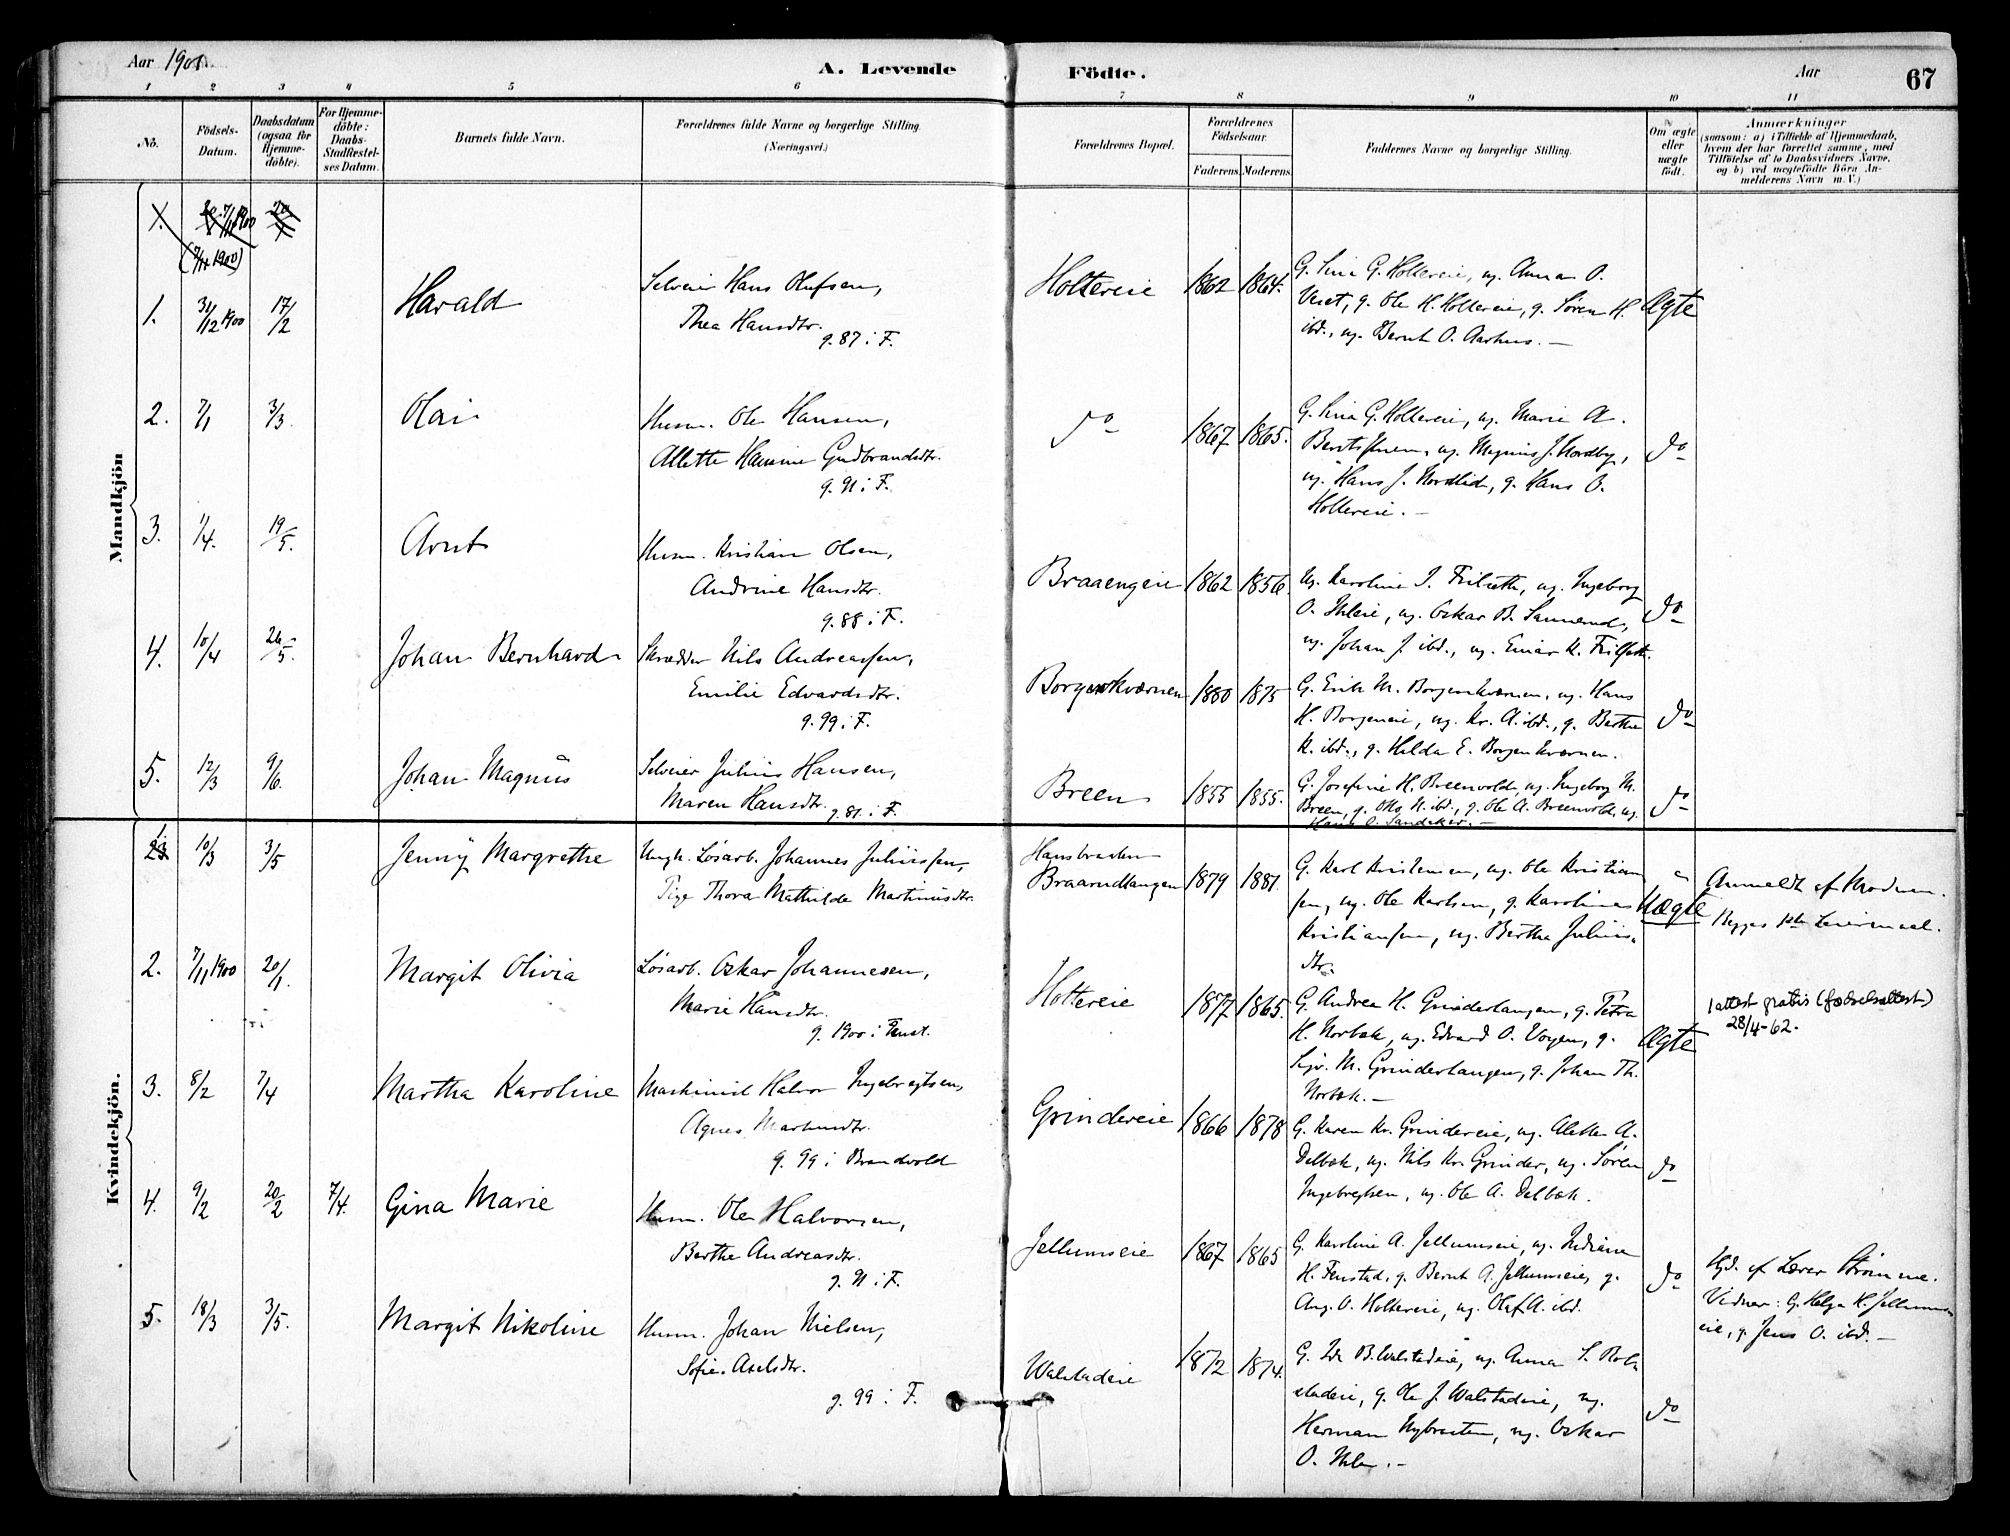 Aar 1901.
A. Levende
Födte.
Aar
67
1 2 3 4 5 6 7 8 9 10 11
No.
Födsels-
Datum.
Daabsdatum
(ogsaa for
Hjemme-
döbte).
For Hjemme-
döbte:
Daabs-
Stadfæstel-
ses Datum.
Barnets fulde Navn.
Forældrenes fulde Navne og borgerlige Stilling.
(Næringsvei.)
Forældrenes Bopæl.
Forældrenes
Födselsaar.
Faderens. Moderens.
Faddernes Navne og borgerlige Stilling.
Om ægte
eller
uægte
født.
Anmærkninger
(saasom: a) i Tilfælde af Hjemmedaab,
hvem der har forrettet samme, med
Tilföielse af to Daabsvidners Navne,
og b) ved uægtefödte Börn An-
melderens Navn m. V.)
Mandkjön
(7/11 1900)
1. 31/12 1900 17/2 Harald
Selveier Hans Olufsen,
Thea Hansdtr.
g. 87 i F.
Holtereie 1862 1864.
G. Lina G. Holtereie, ug. Anna O.
Veset, g. Ole H. Holtereie, g. Søren H.
ibd., ug. Bernt O. Aarhus. —
Ægte
2. 7/1 3/3 Olai
Husm. Ole Hansen,
Allette Hanine Gudbrandsdtr.
g. 91 i F.
do 1867 1865.
G. Lina G. Holtereie, ug. Marie A.
ug. Magnus J. Nordby,
ug. Hans J. Nordlid, g. Hans O.
Holtereie. —
do
3. 1/4. 19/5. Arnt
Husm. Kristian Olsen,
Andrine Hansdtr.
g. 88 i F.
Braaengeie 1862 1856.
Ug. Karoline J. ug. Ingeborg
O. Ihleie, ug. Oskar B.
ug. Johan J. ibd., ug. Einar K.
do
4. 10/4 26/5. Johan Bernhard
Skrædder Nils Andreassen,
Emilie Edvardsdtr.
g. 99 i F.
Borgenkværnen 1880 1875
G. Erik M. Borgenkværnen, ug. Hans
H. Borgeneie, ug. Kr. A. ibd., g. Berthe
K. ibd., g. Hilda E. Borgenkværnen.
do
5. 12/3 9/6. Johan Magnus
Selveier Julius Hansen,
Maren Hansdtr. g. 81 i F.
Breen 1855 1855.
G. Josefine H. Breenvolde, ug. Ingeborg M.
Breen, g. Otto N. ibd., g. Ole A. Breenvold, ug.
Hans O. Sandaker. —
do
Kvindekjön.
1. 10/3 3/5 Jenny Margrethe
Ungk. Løsarb. Johannes Juliussen,
Pige Thora Mathilde Martinusdtr.
Hansbraaten
Braarudlangen 1879 1881.
G. Karl Kristensen, ug. Ole Kristian
sen, ug. Ole Karlsen, g. Karoline
Kristiansen, ug. Bertha Julius-
dtr.
Uægte
Anmeldt af Moderen.
Begges 1ste Leiermaal.
2. 7/11 1900 20/1. Margit Olivia
Løsarb. Oskar Johannesen,
Marie Hansdtr.
g. 1900 i Fenst.
Holtereie 1877 1865.
G. Andrea H. Grinderhaugen, g. Petra
H. Norbæk, ug. Edvard O. Vogen, g.
Sigv. M. Grinderhaugen, g. Johan Th.
Norbæk. —
Ægte
1 attest gratis (fødselsattest)
28/4-62.
3. 8/2 7/4 Martha Karoline
Maskinist Halvor Ingebregtsen,
Agnes Martinsdtr.
g. 99 i Brandvold
Grindereie 1866 1878
G. Karen Kr. Grindereie, ug. Alette A.
Delbæk, ug. Nils Kr. Grinder, ug. Søren
Ingebregtsen, ug. Ole A. Delbæk.
do
4. 9/2 20/2 7/4. Gina Marie
Husm. Ole Halvorsen,
Berthe Andreasdtr.
g. 91 i F.
Jellumseie 1867 1865
G. Karoline A. Jellumseie, ug. Indiana
H. Fenstad, g. Bernt A. Jellumseie, g.
Aug. O. Holtereie, ug. Olaf A. ibd.
do
Hjd. af Lærer Strømme.
Vidner: G. Helga H. Jellums
eie, g. Jens O. ibd. —
5. 18/3 3/5. Margit Nikoline
Husm. Johan Nielsen,
Sofie Axelsdtr.
g. 99 i F.
Walstadeie 1872 1874.
G. Ida B. Walstadeie, ug. Anna S. Rol
stadeie, g. Ole J. Walstadeie, ug.
Herman Nybraaten, ug. Oskar
O. Ihle. —
do